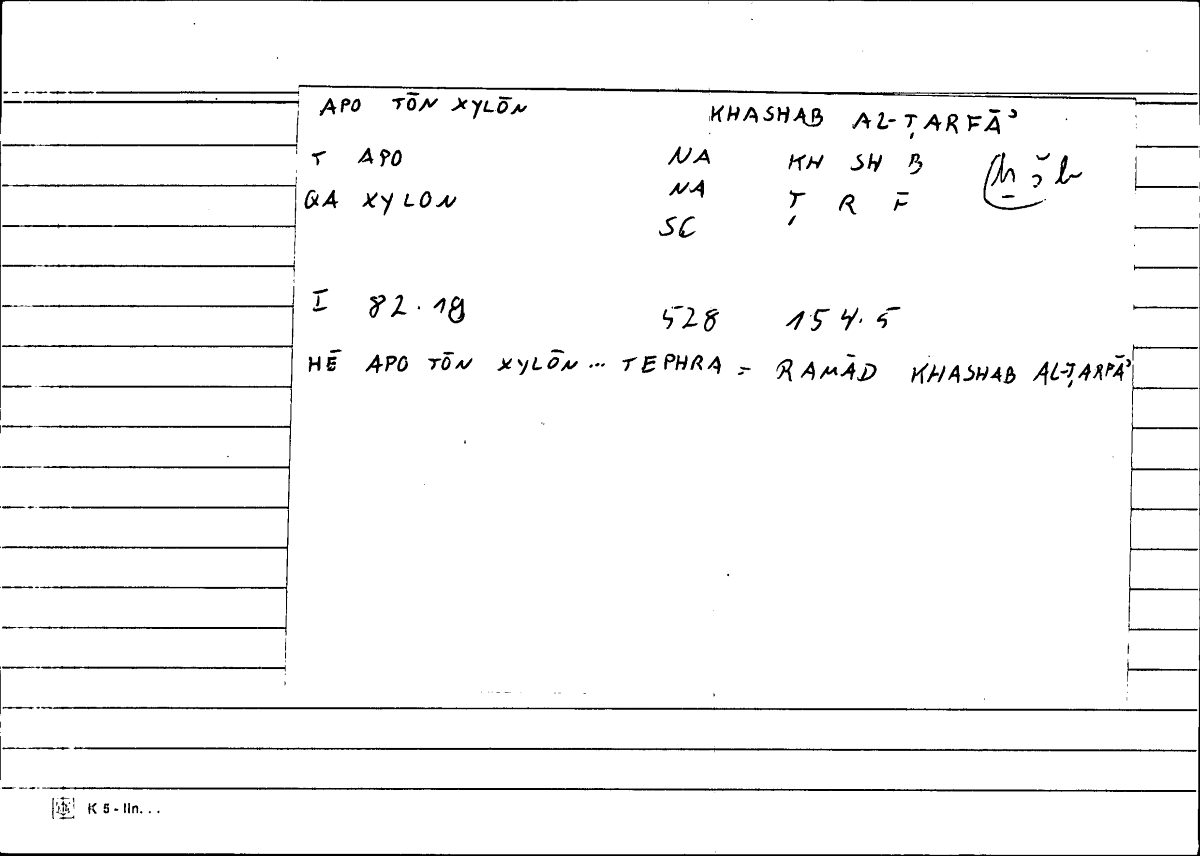 APO TŌN XYLŌN KHASHAB AL-ṬARFĀʾ
T APO NA KH SH B ḫšb
QA XYLON NA Ṭ R F
SC
I 82.19 528 154.5
HĒ APO TŌN XYLŌN... TEPHRA = RAMĀD KHASHAB AL-ṬARFĀʾ
K 5 - lin. . .